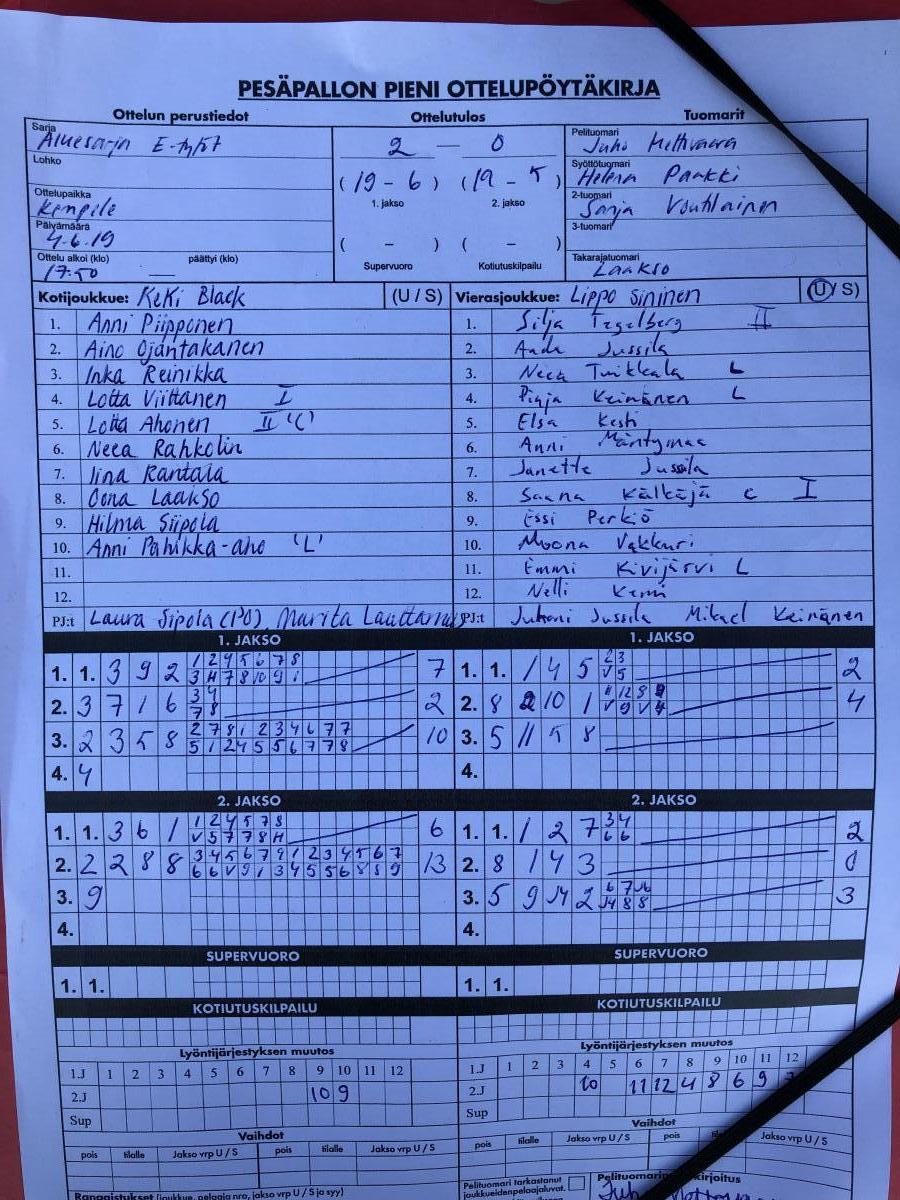 PESÄPALLON PIENI OTTELUPÖYTÄKIRJA
Ottelun perustiedot
Sarja
Aluesarja E-tytöt
Lohko
Ottelupaikka
Kempele
Päivämäärä
4.6.19
Ottelu alkoi (klo) päättyi (klo)
17:50 —
Ottelutulos
2 — 0
(19 - 6) (19 - 5)
1. jakso 2. jakso
( - ) ( - )
Supervuoro Kotiutuskilpailu
Tuomarit
Pelituomari
Juho
Syöttötuomari
Helena Paakki
2-tuomari
Sanja Voutilainen
3-tuomari
Takarajatuomari
Laakso
Kotijoukkue: KeKi Black (U / S)
1. Anni Piipponen
2. Aino Ojantakanen
3. Inka Reinikka
4. Lotta Viittanen I
5. Lotta Ahonen II "C"
6. Neea Rahkolin
7. Iina Rantala
8. Oona Laakso
9. Hilma Siipola
10. Anni Pahikka-aho 'L'
11.
12.
PJ:t Laura Sipola (PJ), Marita
Vierasjoukkue: Lippo Sininen (U / S)
1. Silja Tegelberg II
2. Anda Jussila
3. Neea Tuikkala L
4. Pinja Keinänen L
5. Elsa Kesti
6. Anni Mäntymaa
7. Janette Jussila
8. Saana Kälkäjä C I
9. Essi Perkiö
10. Moona Vakkuri
11. Emmi Kivijärvi L
12. Nelli Kemi
PJ:t Juhani Jussila Mikael Keinänen
1. JAKSO
1. 1. 3 9 2 7
2. 3 7 1 6 2
3 4
7 8
3. 2 3 5 8 10
2 7 8 1 2 3 4 6 7 7
5 1 2 4 5 5 6 7 7 8
4. 4
1. JAKSO
1. 1. 1 4 5 2
2 3
V 5
2. 8 2 10 1 4
3. 5 11 5 8
4.
2. JAKSO
1. 1. 3 6 1 6
1 2 4 5 7 8
V 5 7 7 8 H
2. 2 2 8 8 13
3 4 5 6 7 9 1 2 3 4 5 6 7
6 6 V 9 1 3 4 5 5 6 8 5 9
3. 9
4.
2. JAKSO
1. 1. 1 2 7 2
3 4
6 6
2. 8 1 4 3 0
3. 5 9 2 3
4.
SUPERVUORO
1. 1.
SUPERVUORO
1. 1.
KOTIUTUSKILPAILU
KOTIUTUSKILPAILU
Lyöntijärjestyksen muutos
1.J 1 2 3 4 5 6 7 8 9 10 11 12
2.J 10 9
Sup
Lyöntijärjestyksen muutos
1.J 1 2 3 4 5 6 7 8 9 10 11 12
2.J 10 11 12 4 8 6 9
Sup
Vaihdot
pois tilalle Jakso vrp U / S pois tilalle Jakso vrp U / S
Vaihdot
pois tilalle Jakso vrp U / S pois Jakso vrp U / S
Rangaistukset (joukkue, pelaaja nro, jakso vrp U / S ja syy)
Pelituomari tarkastanut
joukkueidenpelaajaluvat.